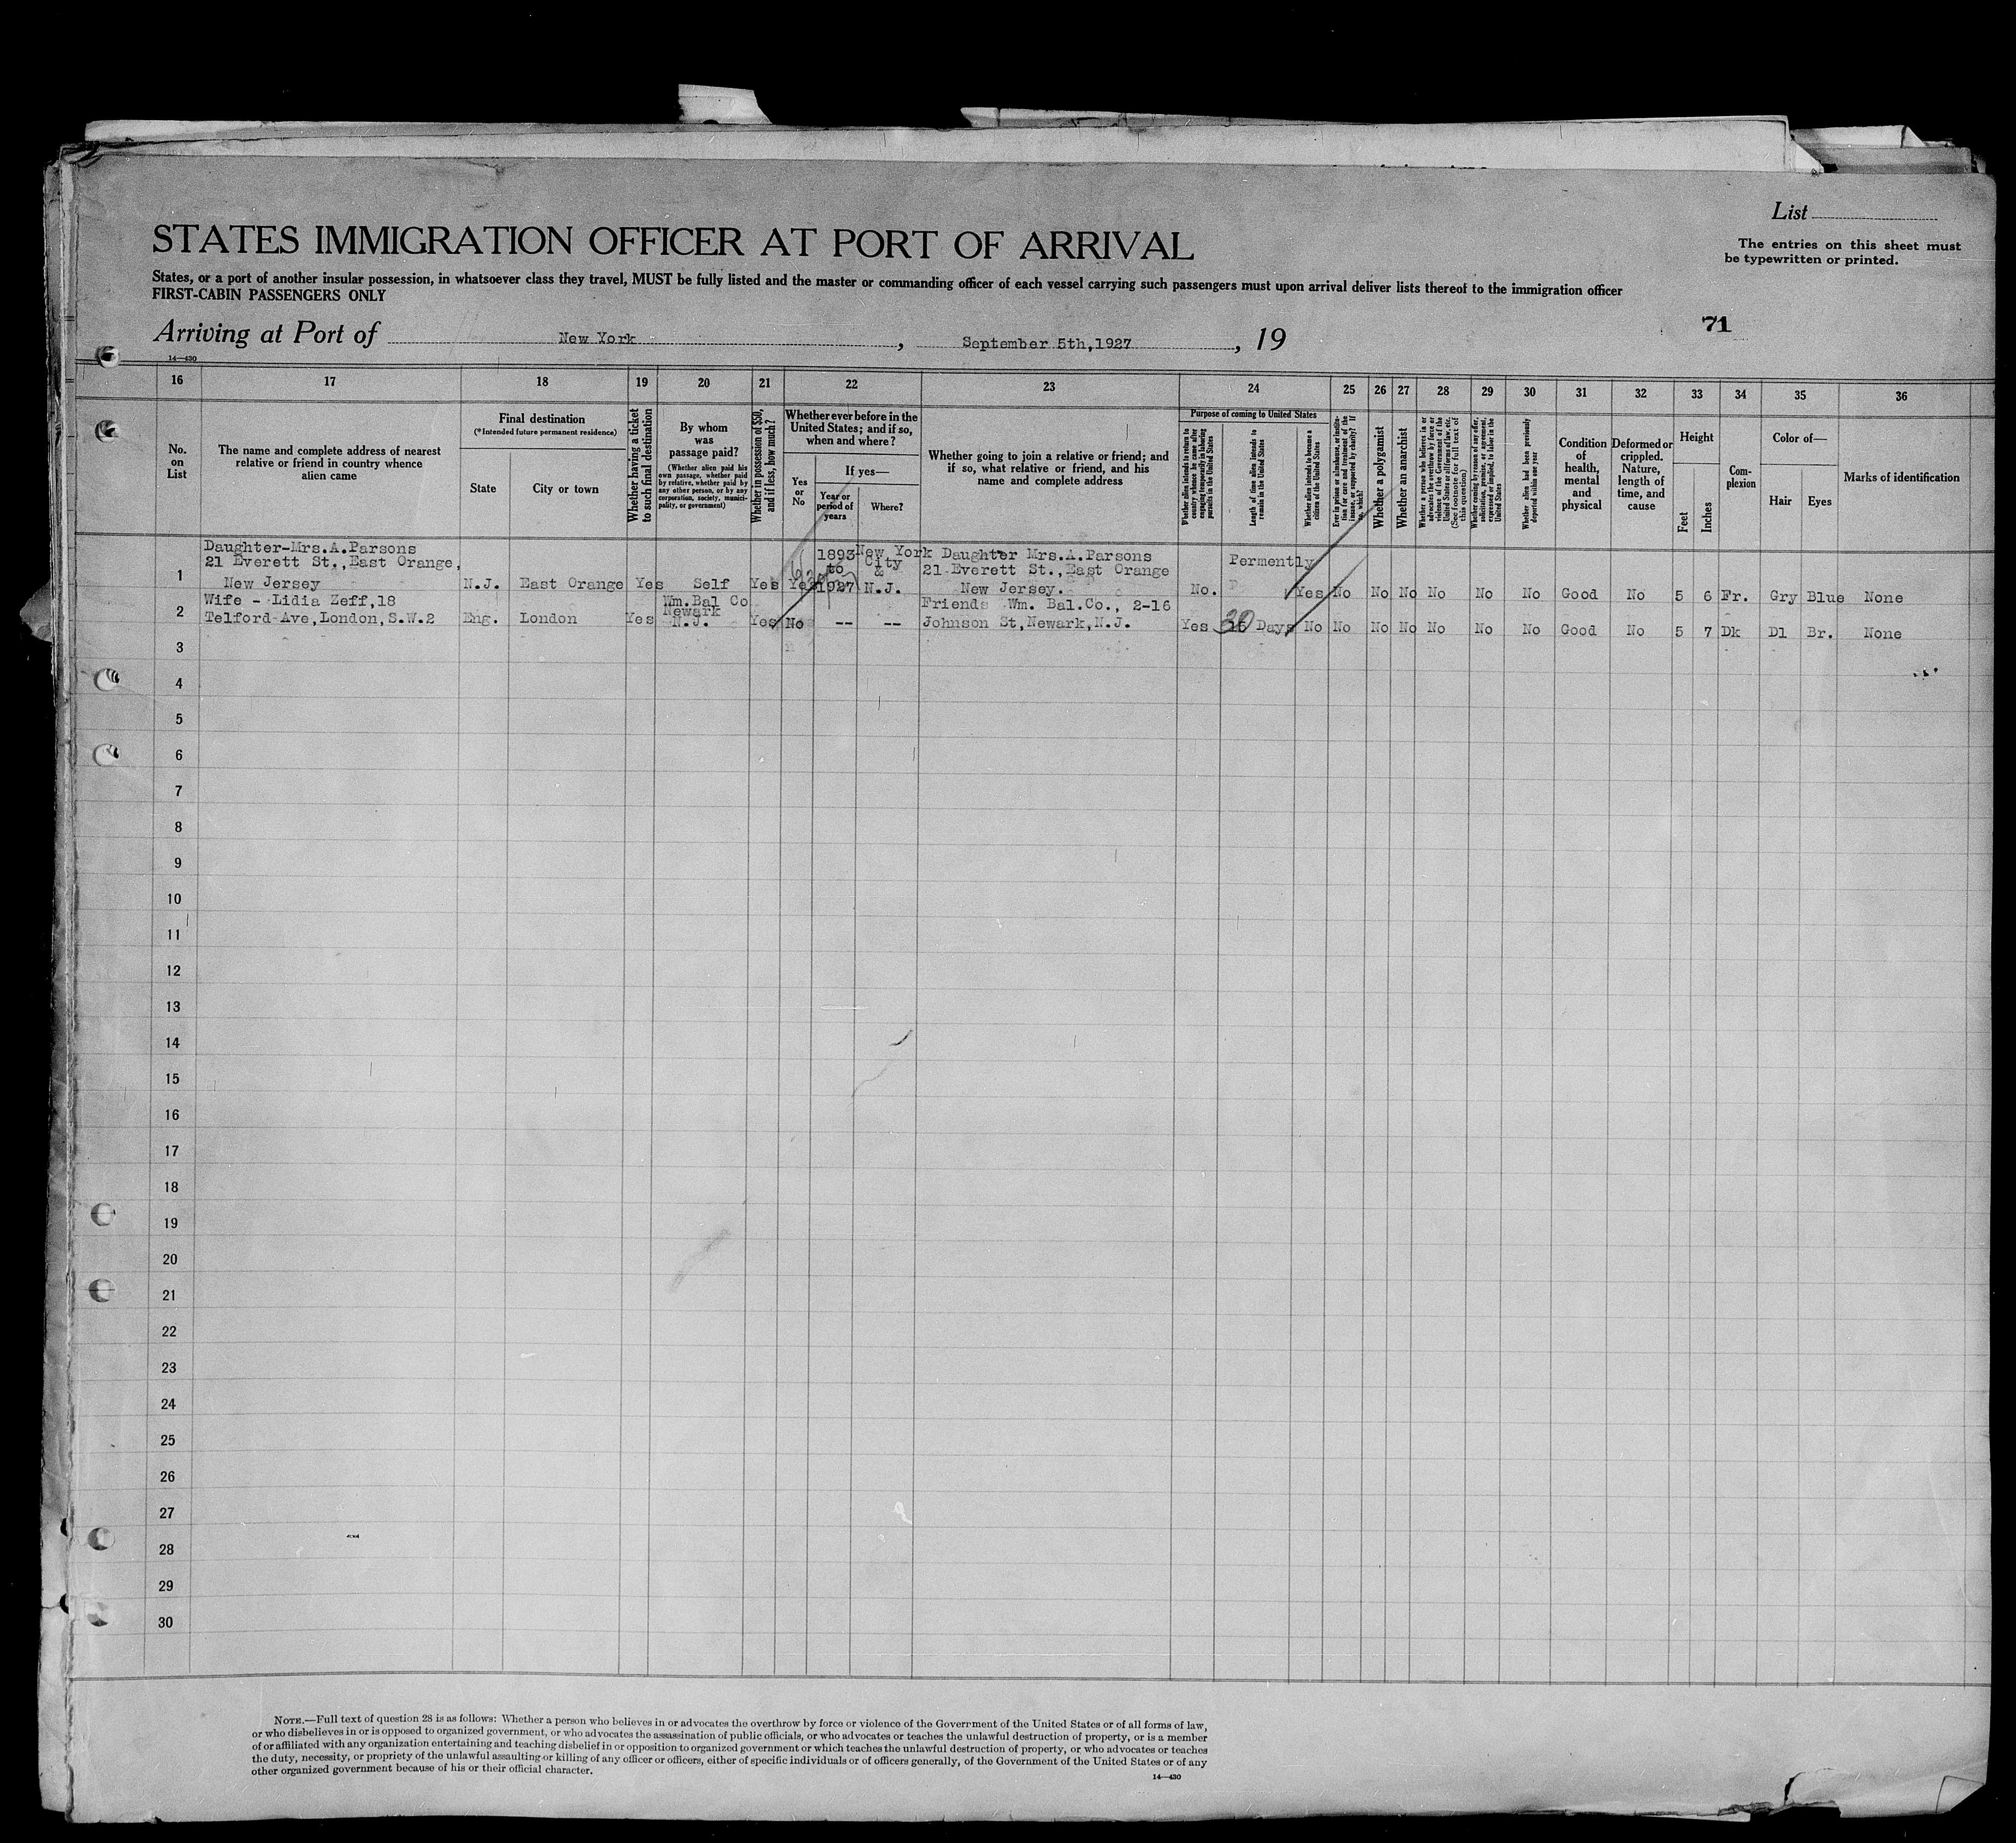 List
STATES IMMIGRATION OFFICER AT PORT OF ARRIVAL
The entries on this sheet must
be typewritten or printed.
States, or a port of another insular possession, in whatsoever class they travel, MUST be fully listed and the master or commanding officer of each vessel carrying such passengers must upon arrival deliver lists thereof to the immigration officer
FIRST-CABIN PASSENGERS ONLY
71
Arriving at Port of New York, September 5th,1927, 19
14—430
16 17 18 19 20 21 22 23 24 25 26 27 28 29 30 31 32 33 34 35 36
No.
on
List
The name and complete address of nearest
relative or friend in country whence
alien came
Final destination
(*Intended future permanent residence)
State
City or town
Whether having a ticket
to such final destination
By whom
was
passage paid?
(Whether alien paid his
own passage, whether paid
by relative, whether paid by
any other person, or by any
corporation, society, munici-
pality, or government)
Whether in possession of $50,
and if less, how much?
Whether ever before in the
United States; and if so,
when and where?
Yes
or
No
If yes—
Year or
period of
years
Where?
Whether going to join a relative or friend; and
if so, what relative or friend, and his
name and complete address
Purpose of coming to United States
Whether alien intends to return to
country whence he came after
engaging temporarily in laboring
pursuits in the United States
Length of time alien intends to
remain in the United States
Whether alien intends to become a
citizen of the United States
Ever in prison or almshouse, or institu-
tion for care and treatment of the
insane, or supported by charity? If
so, which?
Whether a polygamist
Whether an anarchist
Whether a person who believes in or
advocates the overthrow by force or
violence of the Government of the
United States or all forms of law, etc.
(See footnote for full text of
this question)
Whether coming by reason of any offer,
solicitation, promise, or agreement,
expressed or implied, to labor in the
United States
Whether alien had been previously
deported within one year
Condition
of
health,
mental
and
physical
Deformed or
crippled.
Nature,
length of
time, and
cause
Height
Feet
Inches
Com-
plexion
Color of—
Hair
Eyes
Marks of identification
Daughter-Mrs.A.Parsons 1893 New York Daughter Mrs.A.Parsons Permently
21 Everett St.,East Orange, to City & 21 Everett St.,East Orange
1 New Jersey N.J. East Orange Yes Self Yes Yes 1927 N.J. New Jersey. No. Yes No No No No No No Good No 5 6 Fr. Gry Blue None
Wife - Lidia Zeff,18 Wm.Bal Co Newark Friends Wm. Bal.Co., 2-16
2 Telford Ave,London,S.W.2 Eng. London Yes N.J. Yes No -- -- Johnson St,Newark,N.J. Yes 30 Days No No No No No No No Good No 5 7 Dk Dl Br. None
3
4
5
6
7
8
9
10
11
12
13
14
15
16
17
18
19
20
21
22
23
24
25
26
27
28
29
30
NOTE.—Full text of question 28 is as follows: Whether a person who believes in or advocates the overthrow by force or violence of the Government of the United States or of all forms of law,
or who disbelieves in or is opposed to organized government, or who advocates the assassination of public officials, or who advocates or teaches the unlawful destruction of property, or is a member
of or affiliated with any organization entertaining and teaching disbelief in or opposition to organized government or which teaches the unlawful destruction of property, or who advocates or teaches
the duty, necessity, or propriety of the unlawful assaulting or killing of any officer or officers, either of specific individuals or of officers generally, of the Government of the United States or of any
other organized government because of his or their official character.
14—430